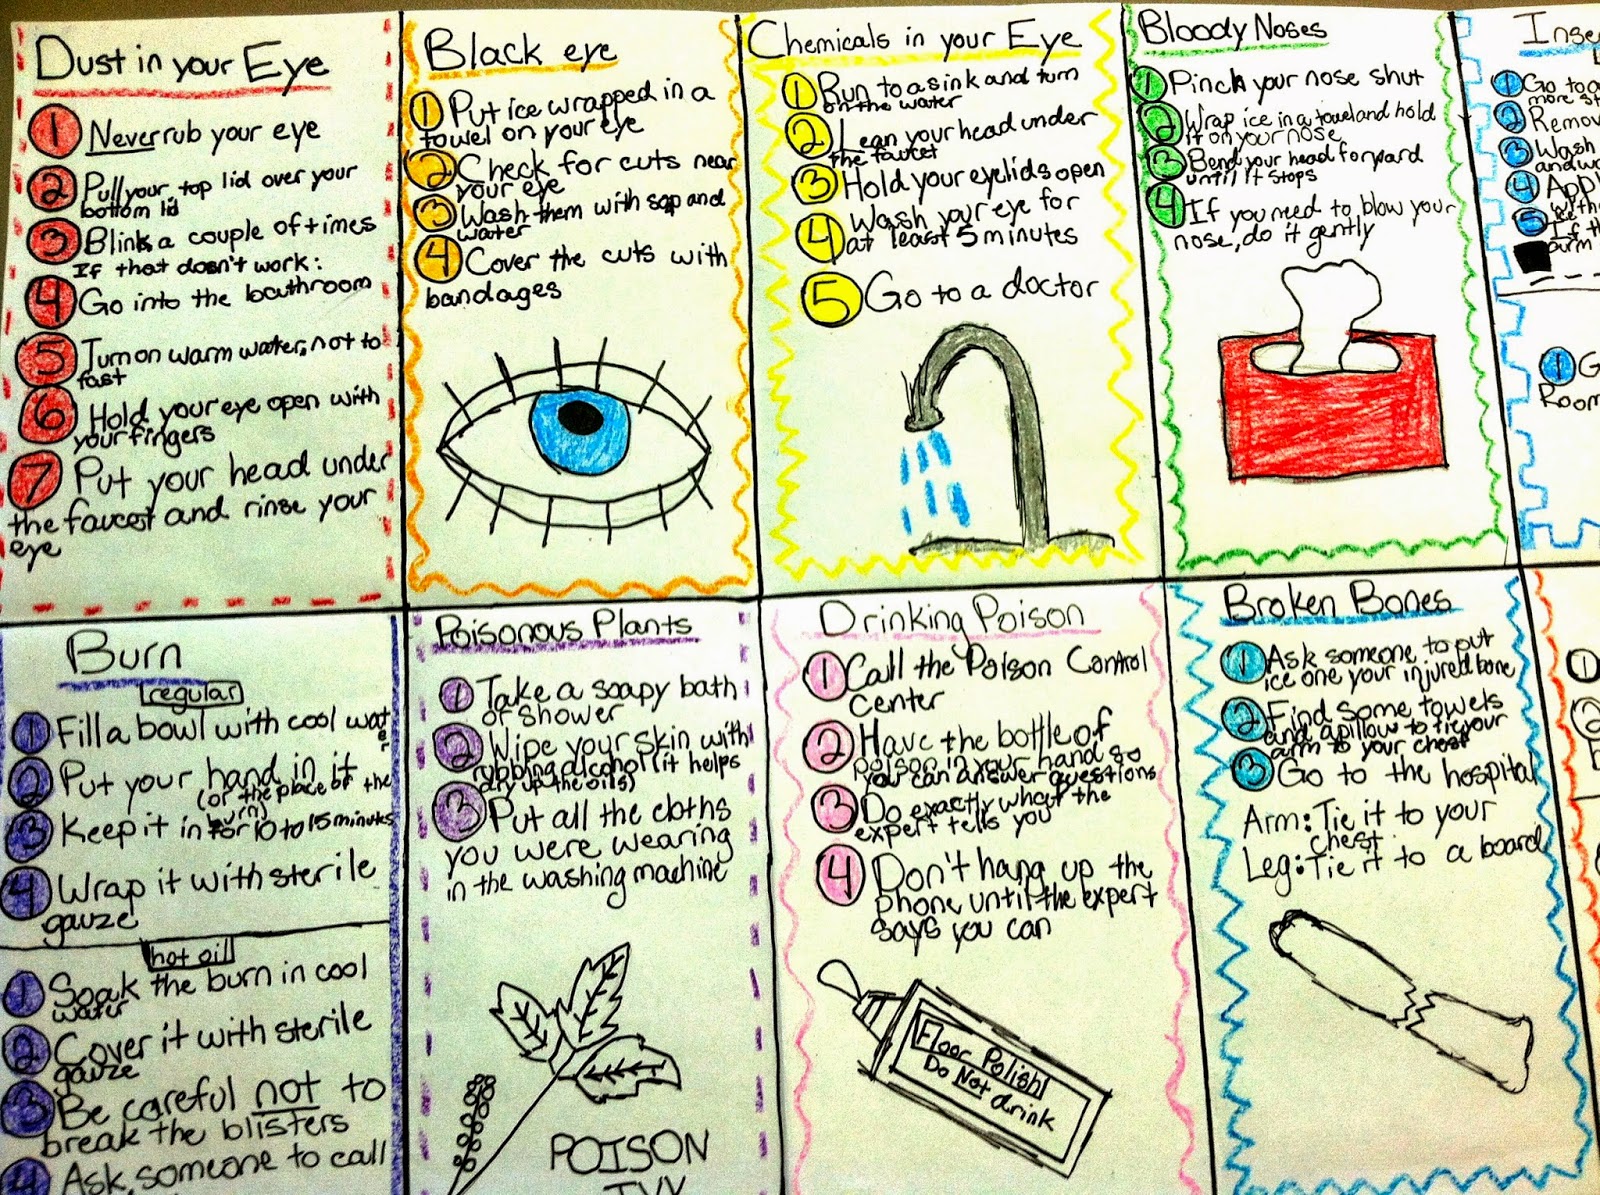 Dust in your Eye
1 Never rub your eye
2 Pull your top lid over your
bottom lid
3 Blink a couple of times
If that doesn't work:
4 Go into the bathroom
5 Turn on warm water, not to
fast
6 Hold your eye open with
your fingers
7 Put your head under
the faucet and rinse your
eye
Black eye
1 Put ice wrapped in a
towel on your eye
2 Check for cuts near
your eye
3 Wash them with sop and
water
4 Cover the cuts with
bandages
Chemicals in your Eye
1 Run to a sink and turn
on the water
2 Lean your head under
the faucet
3 Hold your eyelids open
4 Wash your eye for
at least 5 minutes
5 Go to a doctor
Bloody Noses
1 Pinch your nose shut
2 Wrap ice in a towel and hold
it on your nose
3 Bend your head forward
until it stops
4 If you need to, blow your
nose, do it gently
Inse
1 Go to a
more st
2 Remov
3 Wash
and wa
4 Appl
with
5 If th
1 G
Room
Burn
regular
1 Fill a bowl with cool water
2 Put your hand in it
(or the place of the
burn)
3 Keep it in for 10 to 15 minutes
4 Wrap it with sterile
gauze
hot oil
1 Soak the burn in cool
water
2 Cover it with sterile
gauze
3 Be careful not to
break the blisters
4 Ask someone to call
Poisonous Plants
1 Take a soapy bath
or shower
2 Wipe your skin with
rubbing alcohol (it helps
dry up the oils)
3 Put all the cloths
you were wearing
in the washing machine
POISON
IVY
Drinking Poison
1 Call the Poison Control
center
2 Have the bottle of
poison in your hand so
you can answer questions
3 Do exactly what the
expert tells you
4 Don't hang up the
phone until the expert
says you can
Floor Polish
Do Not drink
Broken Bones
1 Ask someone to put
ice one your injured bone
2 Find some towels
and a pillow to tie your
arm to your chest
3 Go to the hospital
Arm: Tie it to your
chest
Leg: Tie it to a board
1
2